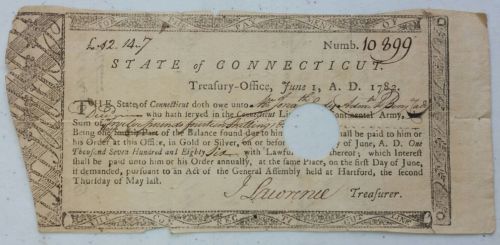 £ 12. 14. 7
Numb. 10899
STATE of CONNECTICUT.
Treasury-Office, June 1, A. D. 1782.
THE State of Connecticut doth owe unto
who hath served in the Connecticut Army,
Sum of
Being one Part of the Balance found due to him shall be paid to him or
his Order at this Office, in Gold or Silver, on or before of June, A. D. One
Thousand Seven Hundred and Eighty Six with Lawful thereof; which Interest
shall be paid unto him or his Order annually, at the same Place, on the first Day of June,
if demanded, pursuant to an Act of the General Assembly held at Hartford, the second
Thursday of May last.
J Lawrence Treasurer.